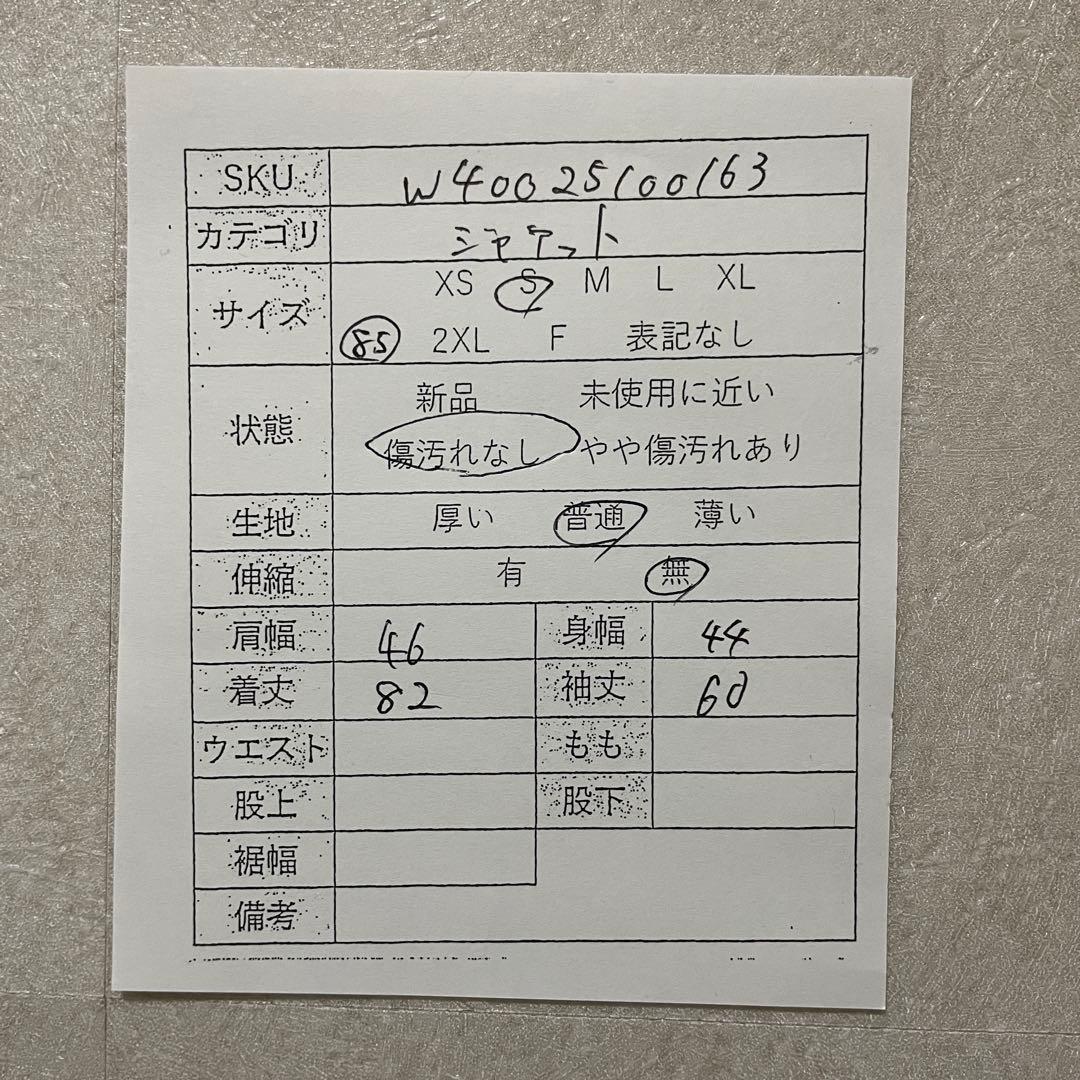 SKU W40025100163
カテゴリ ジャケット
サイズ XS S M L XL
85 2XL F 表記なし
状態 新品 未使用に近い
傷汚れなし やや傷汚れあり
生地 厚い 普通 薄い
伸縮 有 無
肩幅 46 身幅 44
着丈 82 袖丈 60
ウエスト もも
股上 股下
裾幅
備考